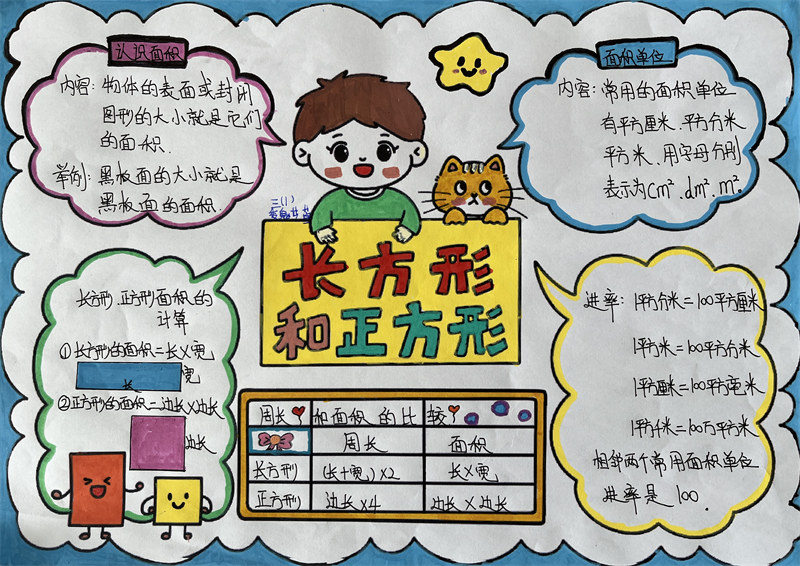 认识面积
内容：物体的表面或封闭
图形的大小就是它们
的面积．
举例：黑板面的大小就是
黑板面的面积．
面积单位
内容：常用的面积单位
有平方厘米、平方分米
平方米、用字母分别
表示为cm²、dm²、m²
三(1)
长方形
和正方形
长方形、正方形面积的
计算
①长方形的面积=长×宽
宽
长
②正方形的面积=边长×边长
边长
周长和面积的比较
周长 面积
长方形 (长+宽)×2 长×宽
正方形 边长×4 边长×边长
进率：1平方分米=100平方厘米
1平方米=100平方分米
1平方厘米=100平方毫米
1平方千米=100万平方米
相邻两个常用面积单位
进率是100．